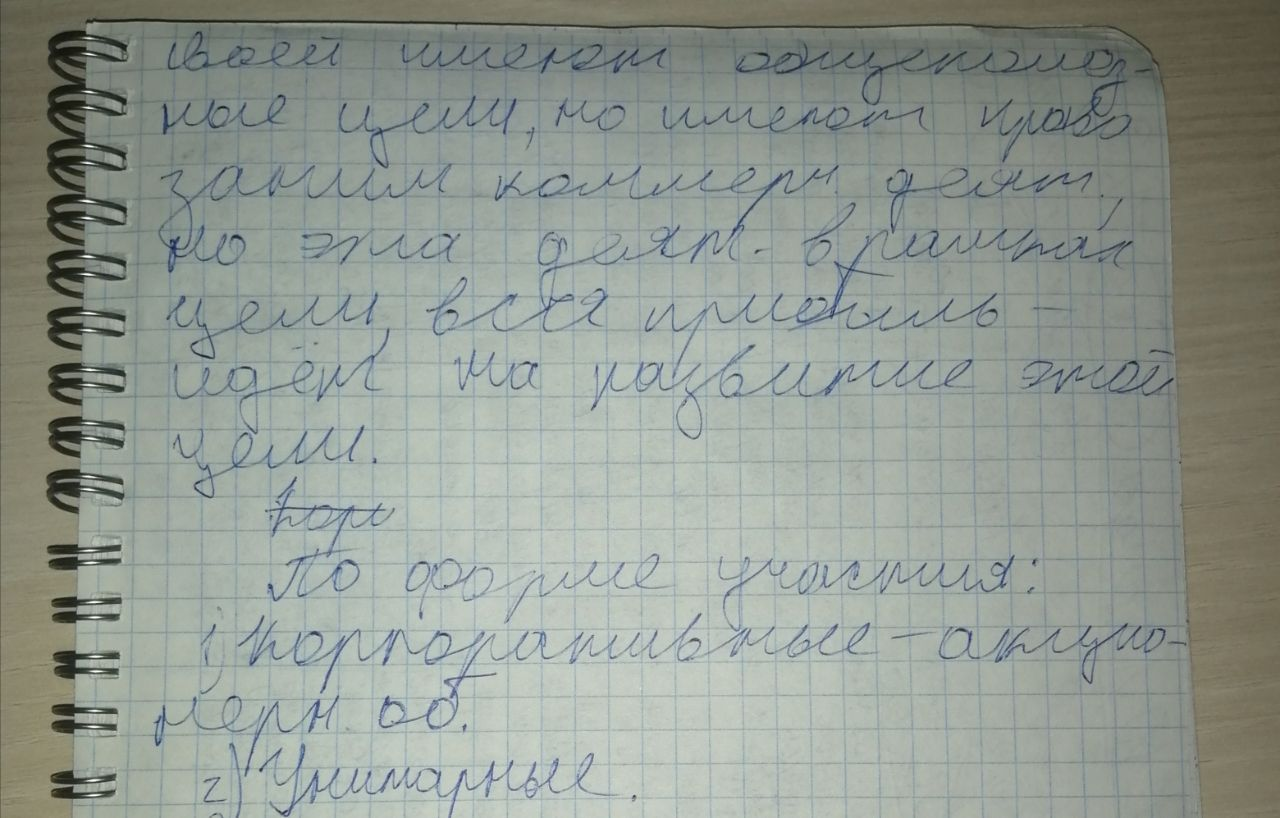 своей имеют общеполез-
ные цели, но имеют право
заним коммерч. деят.,
но эта деят. в рамках
цели, вся прибыль –
идёт на развитие этой
цели.
Кор
По форме участия:
1) Корпоративные – акцио-
нерн. об.
2) Унитарные.